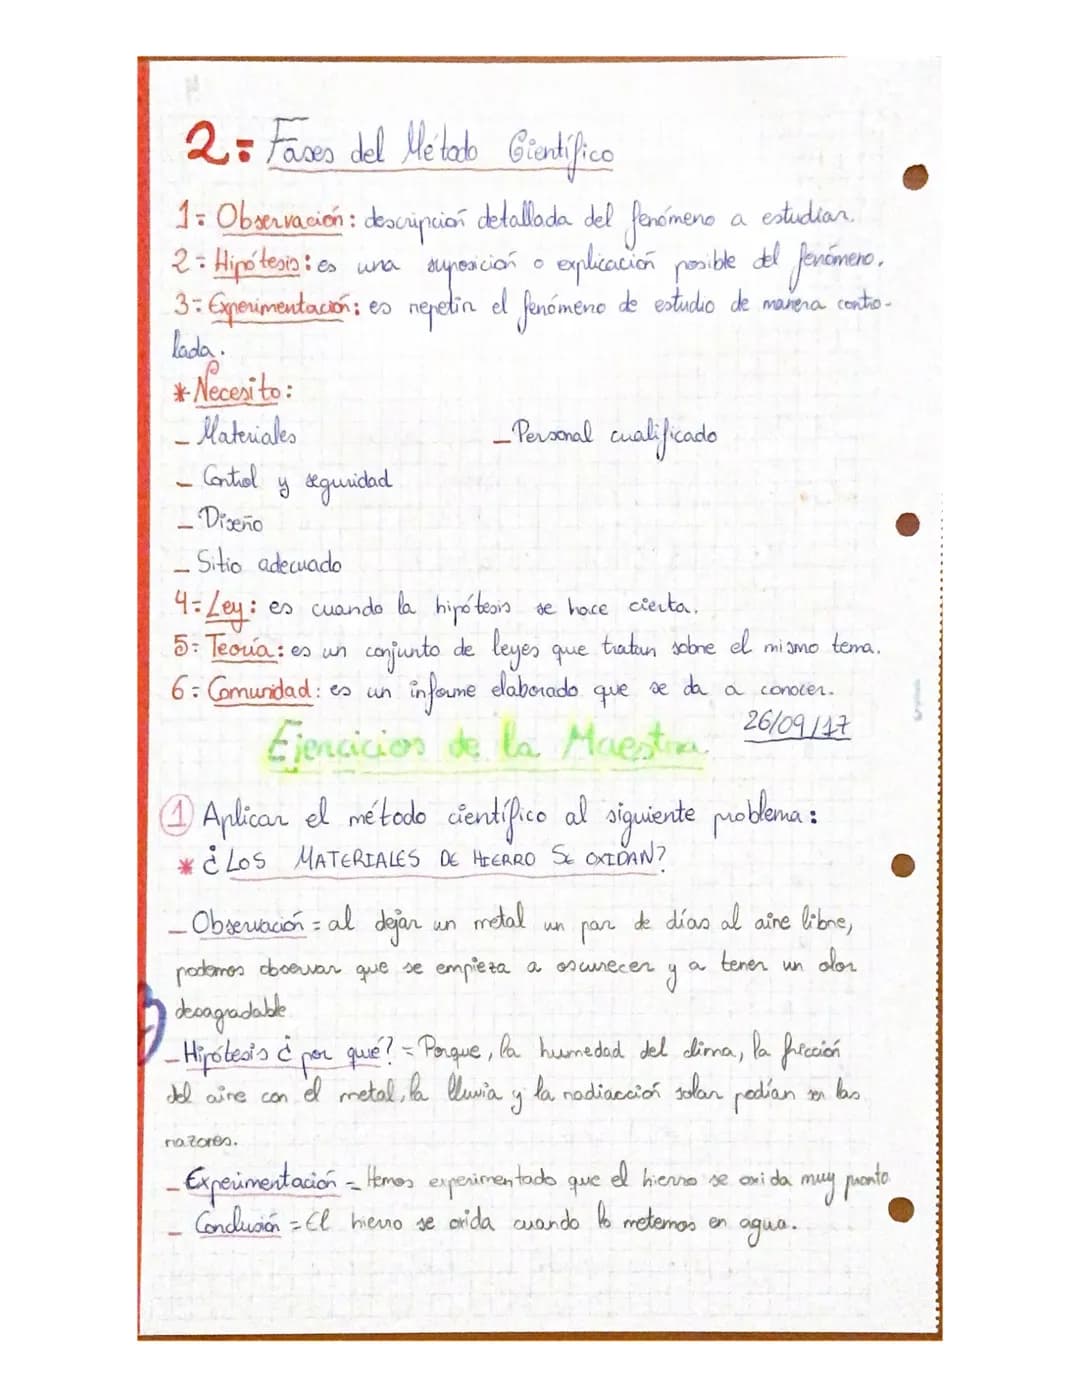 2= Fases del Método Científico
1= Observación: descripción detallada del fenómeno a estudiar.
2= Hipótesis: es una suposición o explicación posible del fenómeno.
3= Experimentación: es repetir el fenómeno de estudio de manera contro-
lada.
* Necesito:
- Materiales - Personal cualificado
- Control y seguridad
- Diseño
- Sitio adecuado
4= Ley: es cuando la hipótesis se hace cierta.
5= Teoría: es un conjunto de leyes que tratan sobre el mismo tema.
6= Comunidad: es un informe elaborado que se da a conocer.
26/09/17
Ejercicios de la Maestra.
1 Aplicar el método científico al siguiente problema:
* ¿LOS MATERIALES DE HIERRO SE OXIDAN?
- Observación = al dejar un metal un par de días al aire libre,
podemos observar que se empieza a oscurecer y a tener un olor
desagradable.
- Hipótesis ¿por qué? = Porque, la humedad del clima, la fricción
del aire con el metal, la lluvia y la radiacción solar podían ser las
razores.
- Experimentación = Hemos experimentado que el hierro se oxida muy pronto
- Conclusión = El hierro se oxida cuando lo metemos en agua.